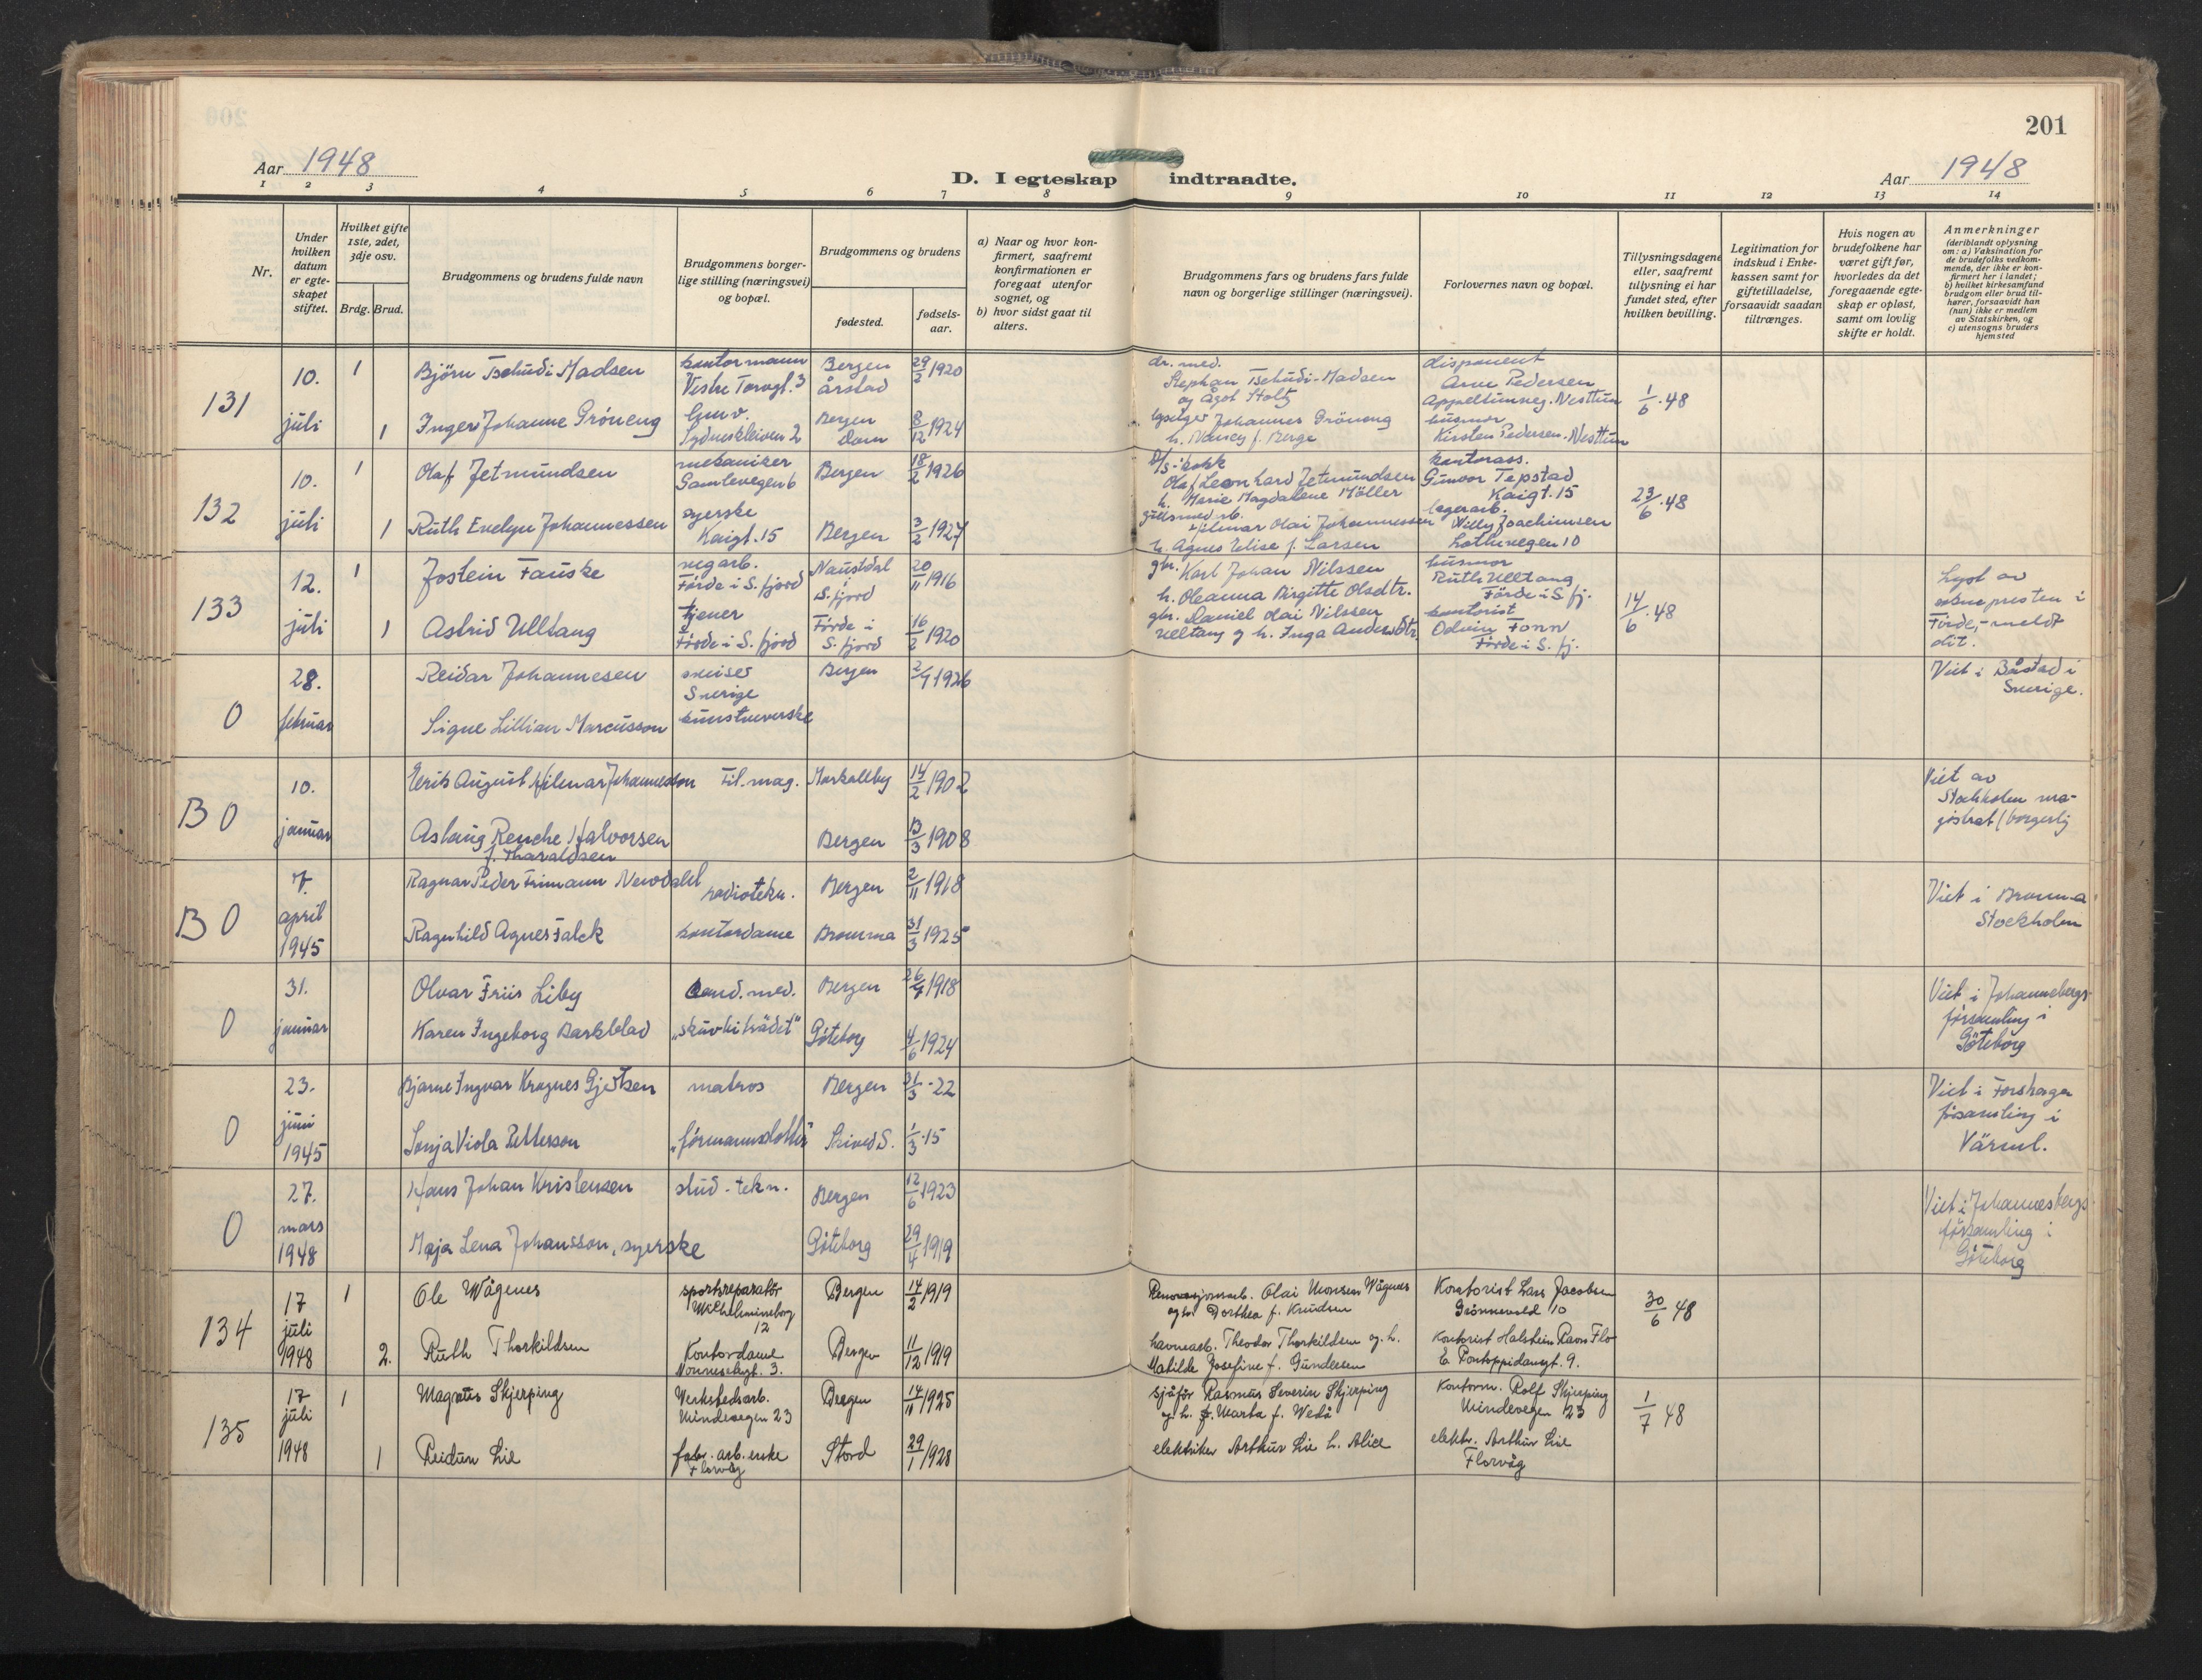 201
Aar 1948
D. I egteskap indtraadte.
Aar 1948
1 2 3 4 5 6 7 8 9 10 11 12 13 14
Nr.
Under hvilken datum er egteskapet stiftet.
Hvilket gifte 1ste, 2det, 3dje osv.
Brdg. Brud.
Brudgommens og brudens fulde navn
Brudgommens borgerlige stilling (næringsvei) og bopæl.
Brudgommens og brudens
fødested.
fødselsaar.
a) Naar og hvor konfirmert, saafremt konfirmationen er foregaat utenfor sognet, og
b) hvor sidst gaat til alters.
Brudgommens fars og brudens fars fulde navn og borgerlige stillinger (næringsvei).
Forlovernes navn og bopæl.
Tillysningsdagene eller, saafremt tillysning ei har fundet sted, efter hvilken bevilling.
Legitimation for indskud i Enkekassen samt for giftetilladelse, forsaavidt saadan tiltrænges.
Hvis nogen av brudefolkene har været gift før, hvorledes da det foregaaende egteskap er opløst, samt om lovlig skifte er holdt.
Anmerkninger
(deriblandt oplysning om: a) Vaksination for de brudefolks vedkommende, der ikke er konfirmert her i landet;
b) hvilket kirkesamfund brudgom eller brud tilhører, forsaavidt han (hun) ikke er medlem av Statskirken, og
c) utensogns bruders hjemsted
131
10. juli
1
Bjørn Tschudi Madsen
kontormann
Vestre Torvgt. 3
Bergen årstad
29/2 1920
dr. med.
Stephan Tschudi-Madsen
og Ågot Stoltz
disponent
Arne Pedersen
Appeltunveg. Nesttun
1/6.48
1
Inger Johanne Gröneng
Sydneskleiven 2
Bergen Dom
8/12 1924
Johannes Gröneng
h. Nancy f. Berge
husmor
Kirsten Pedersen. Nesttun
132
10. juli
1
Olaf Jetmundsen
mekaniker
Gamlevegen 6
Bergen
18/2 1926
D/S-kokk
Olaf Leonhard Jetmundsen
h. Marie Magdalene Möller
kontorass.
Gunvor Tepstad
Kaigt. 15
23/6.48
1
Ruth Evelyn Johannessen
syerske
Kaigt. 15
Bergen
3/2 1927
Hilmar Olai Johannessen
h. Agnes Elise f. Larsen
lagerarb.
Willy Joachimsen
Lothevegen 10
133
12. juli
1
Jostein Fauske
vegarb.
Förde i S. fjord
Naustdal i S. fjord
20/11 1916
gbr. Karl Johan Nilssen
h. Oleanna Birgitte Olsdtr.
husmor
Ruth Ulltang
Förde i S. fj.
14/6.48
Lyst av
soknepresten i
Förde, - meldt
dit.
1
Astrid Ulltang
tjener
Förde i S. fjord
Förde i S. fjord
16/2 1920
gbr. Daniel Olai Nilssen
Ulltang og h. Inga Andersdtr.
kontorist
Odvin Fonn
Förde i S. fj.
0
28. februar
Reidar Johannesen
Sverige
Bergen
2/4 1926
Viet i Båstad i
Sverige.
Signe Lillian Marcusson
kunstveverske
B 0
10. januar
Erik August Hilmar Johannesson
Fil. mag.
Markallby
14/2 1902
Viet av
Stockholm ma-
gistrat (borgerlig
Aslaug Renche Halvorsen
f. Tharaldsen
Bergen
13/3 1908
B 0
7. april 1945
Ragnar Peder Frimann Newdahl
radiotekn.
Bergen
2/11 1918
Viet i Bromma
Stockholm
Ragnhild Agnes Falck
kontordame
Bromma
31/3 1925
0
31. januar
Olvar Friis Liby
Cand. med.
Bergen
26/4 1918
Viet i Johannebergs-
församling i
Göteborg
Karen Ingeborg Barkblad
Göteborg
4/6 1924
0
23. juni 1945
Bjarne Ingvar Krognes Gjertsen
matros
Bergen
31/3 - 22
Viet i Forshaga
församling i
Värml.
Sonja Viola Petterson
1/3.15
0
27. mars 1948
Hans Johan Kristensen
stud. tekn.
Bergen
12/6 1923
Viet i Johannesbergs-
församling i
Göteborg
Maja Lena Johansson, syerske
Göteborg
29/4 1919
134
17 juli 1948
1
Ole Wågenes
sportsreparatör
Wilhelmineborg 12
Bergen
14/2 1919
Renovasjonsarb. Olai Monsen Wågenes
og h. Dorthea f. Knudsen
Kontorist Lars Jacobsen
Grönnevold 10
30/6 48
2.
Ruth Thorkildsen
Kontordame
Nonneseterg. 3.
Bergen
11/12 1919
havnearb. Theodor Thorkildsen og h.
Matilde Josefine f. Gundersen
Kontorist Halstein Ravn Flo
E. Pontoppidansgt. 9.
135
17 juli 1948
1
Magnus Skjerping
Verkstedsarb.
Mindevegen 23
Bergen
14/11 1925
sjåför Rasmus Severin Skjerping
og h. Marta f. Wedå
Kontorm. Rolf Skjerping
Mindevegen 23
1/7 48
1
Reidun Lie
fabr. arb.
Florvåg
Stord
29/1 1928
elektriker Arthur Lie h. Alice
elektr. Arthur Lie
Florvåg